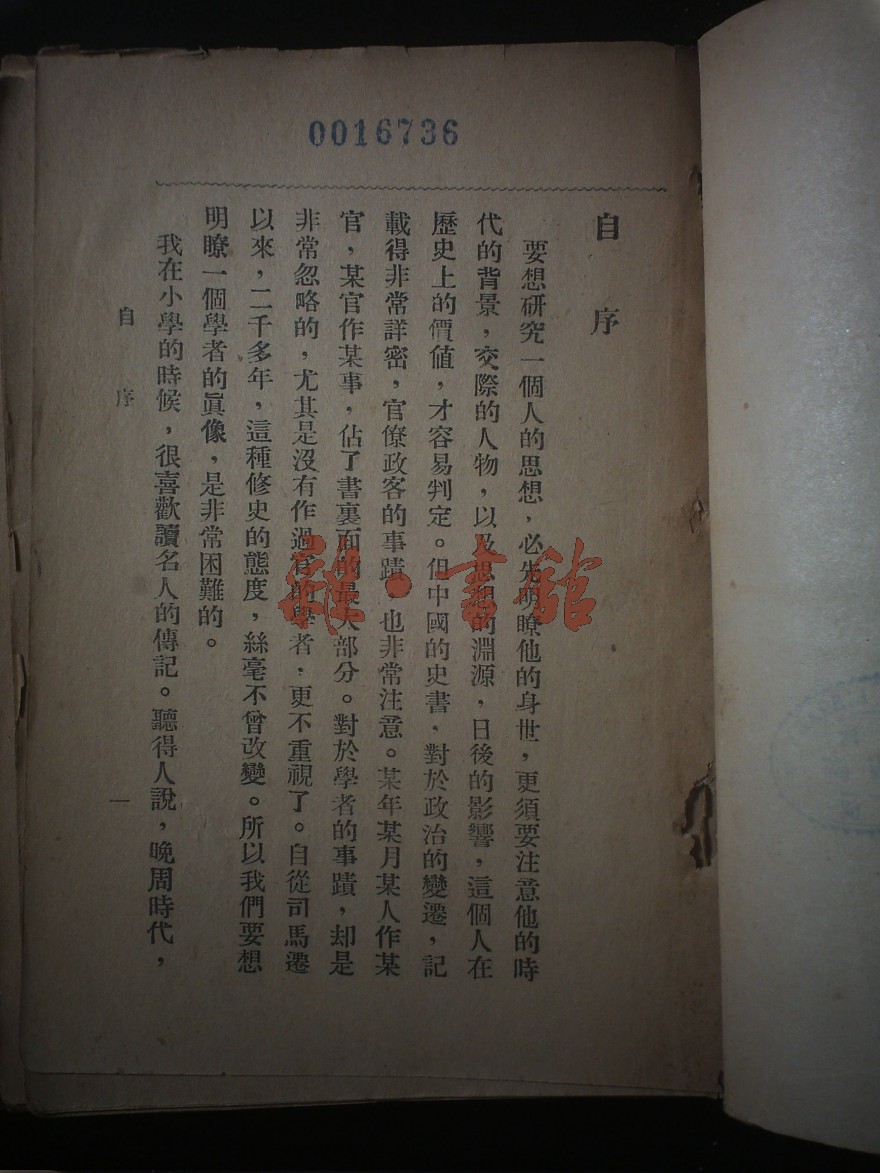 0016736
自序
要想研究一個人的思想，必先明瞭他的身世，更須要注意他的時
代的背景，交際的人物，以及思想的淵源，日後的影響，這個人在
歷史上的價值，才容易判定。但中國的史書，對於政治的變遷，記
載得非常詳密，官僚政客的事蹟，也非常注意。某年某月某人作某
官，某官作某事，佔了書裏面的最大部分。對於學者的事蹟，却是
非常忽略的，尤其是沒有作過官的學者，更不重視了。自從司馬遷
以來，二千多年，這種修史的態度，絲毫不曾改變。所以我們要想
明瞭一個學者的眞像，是非常困難的。
我在小學的時候，很喜歡讀名人的傳記。聽得人說，晚周時代，
自序
一
雜·書館